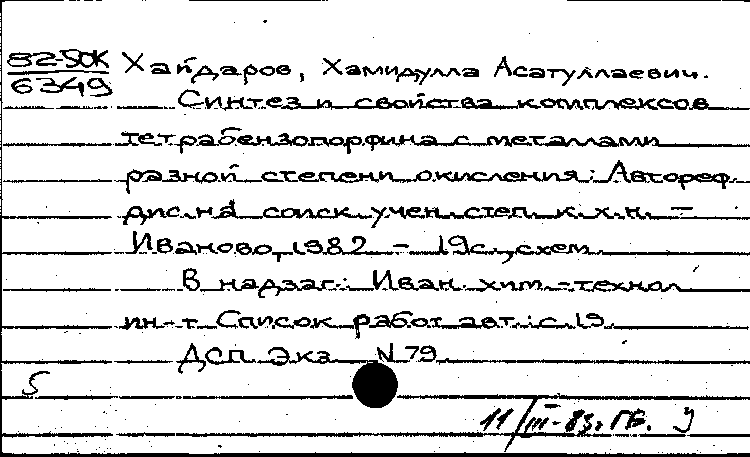 82-50К Хайдаров, Хамидулла Асатуллаевич.
6349 Синтез и свойства комплексов
тетрабензопорфина с металлами
разной степени окисления: Автореф.
дис. на соиск. учен. степ. к.х.н. –
Иваново, 1982 – 19с., схем.
В надзаг.: Иван. хим.-технол
ин-т Список работ авт.: с. 19.
ДСП Экз N 79.
5
11/III-83г. ГБ. У